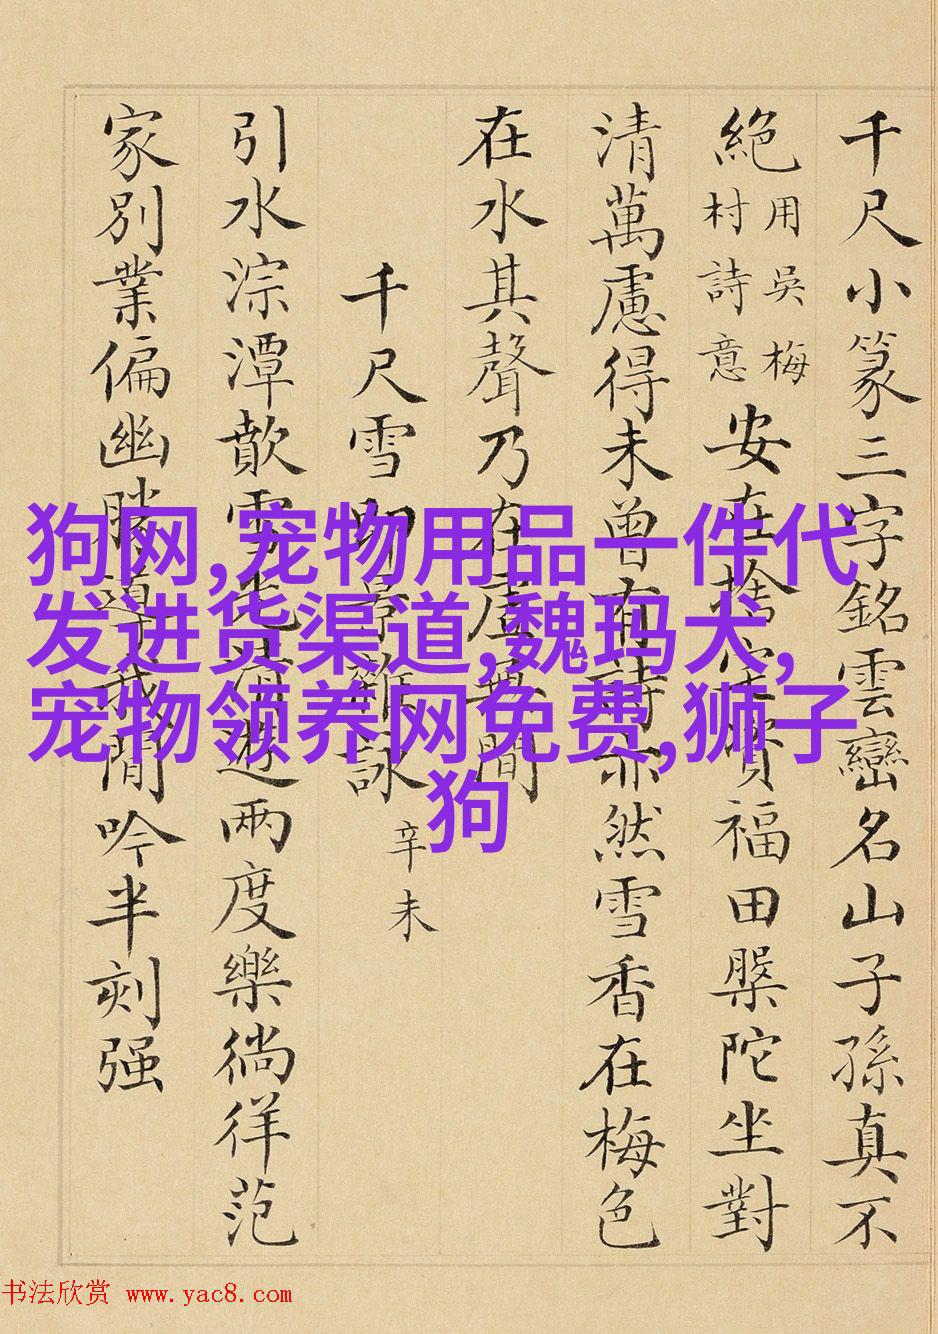 千尺小篆三字銘雲巒名山子孫真不
絕
用吳梅
村詩意
安在捨宅福田槃陀坐對
清萬慮得未曾有詩亦然雪香在梅色
在水其聲乃在虛無間
千尺雪即景雜詠
辛未
引水淙潭歕雪清遊兩度樂徜徉范
家別業偏幽勝閒吟半刻强
狗网,宠物用品一件代
发进货渠道,魏玛犬,
宠物领养网免费,狮子
狗
书法欣赏 www.yac8.com